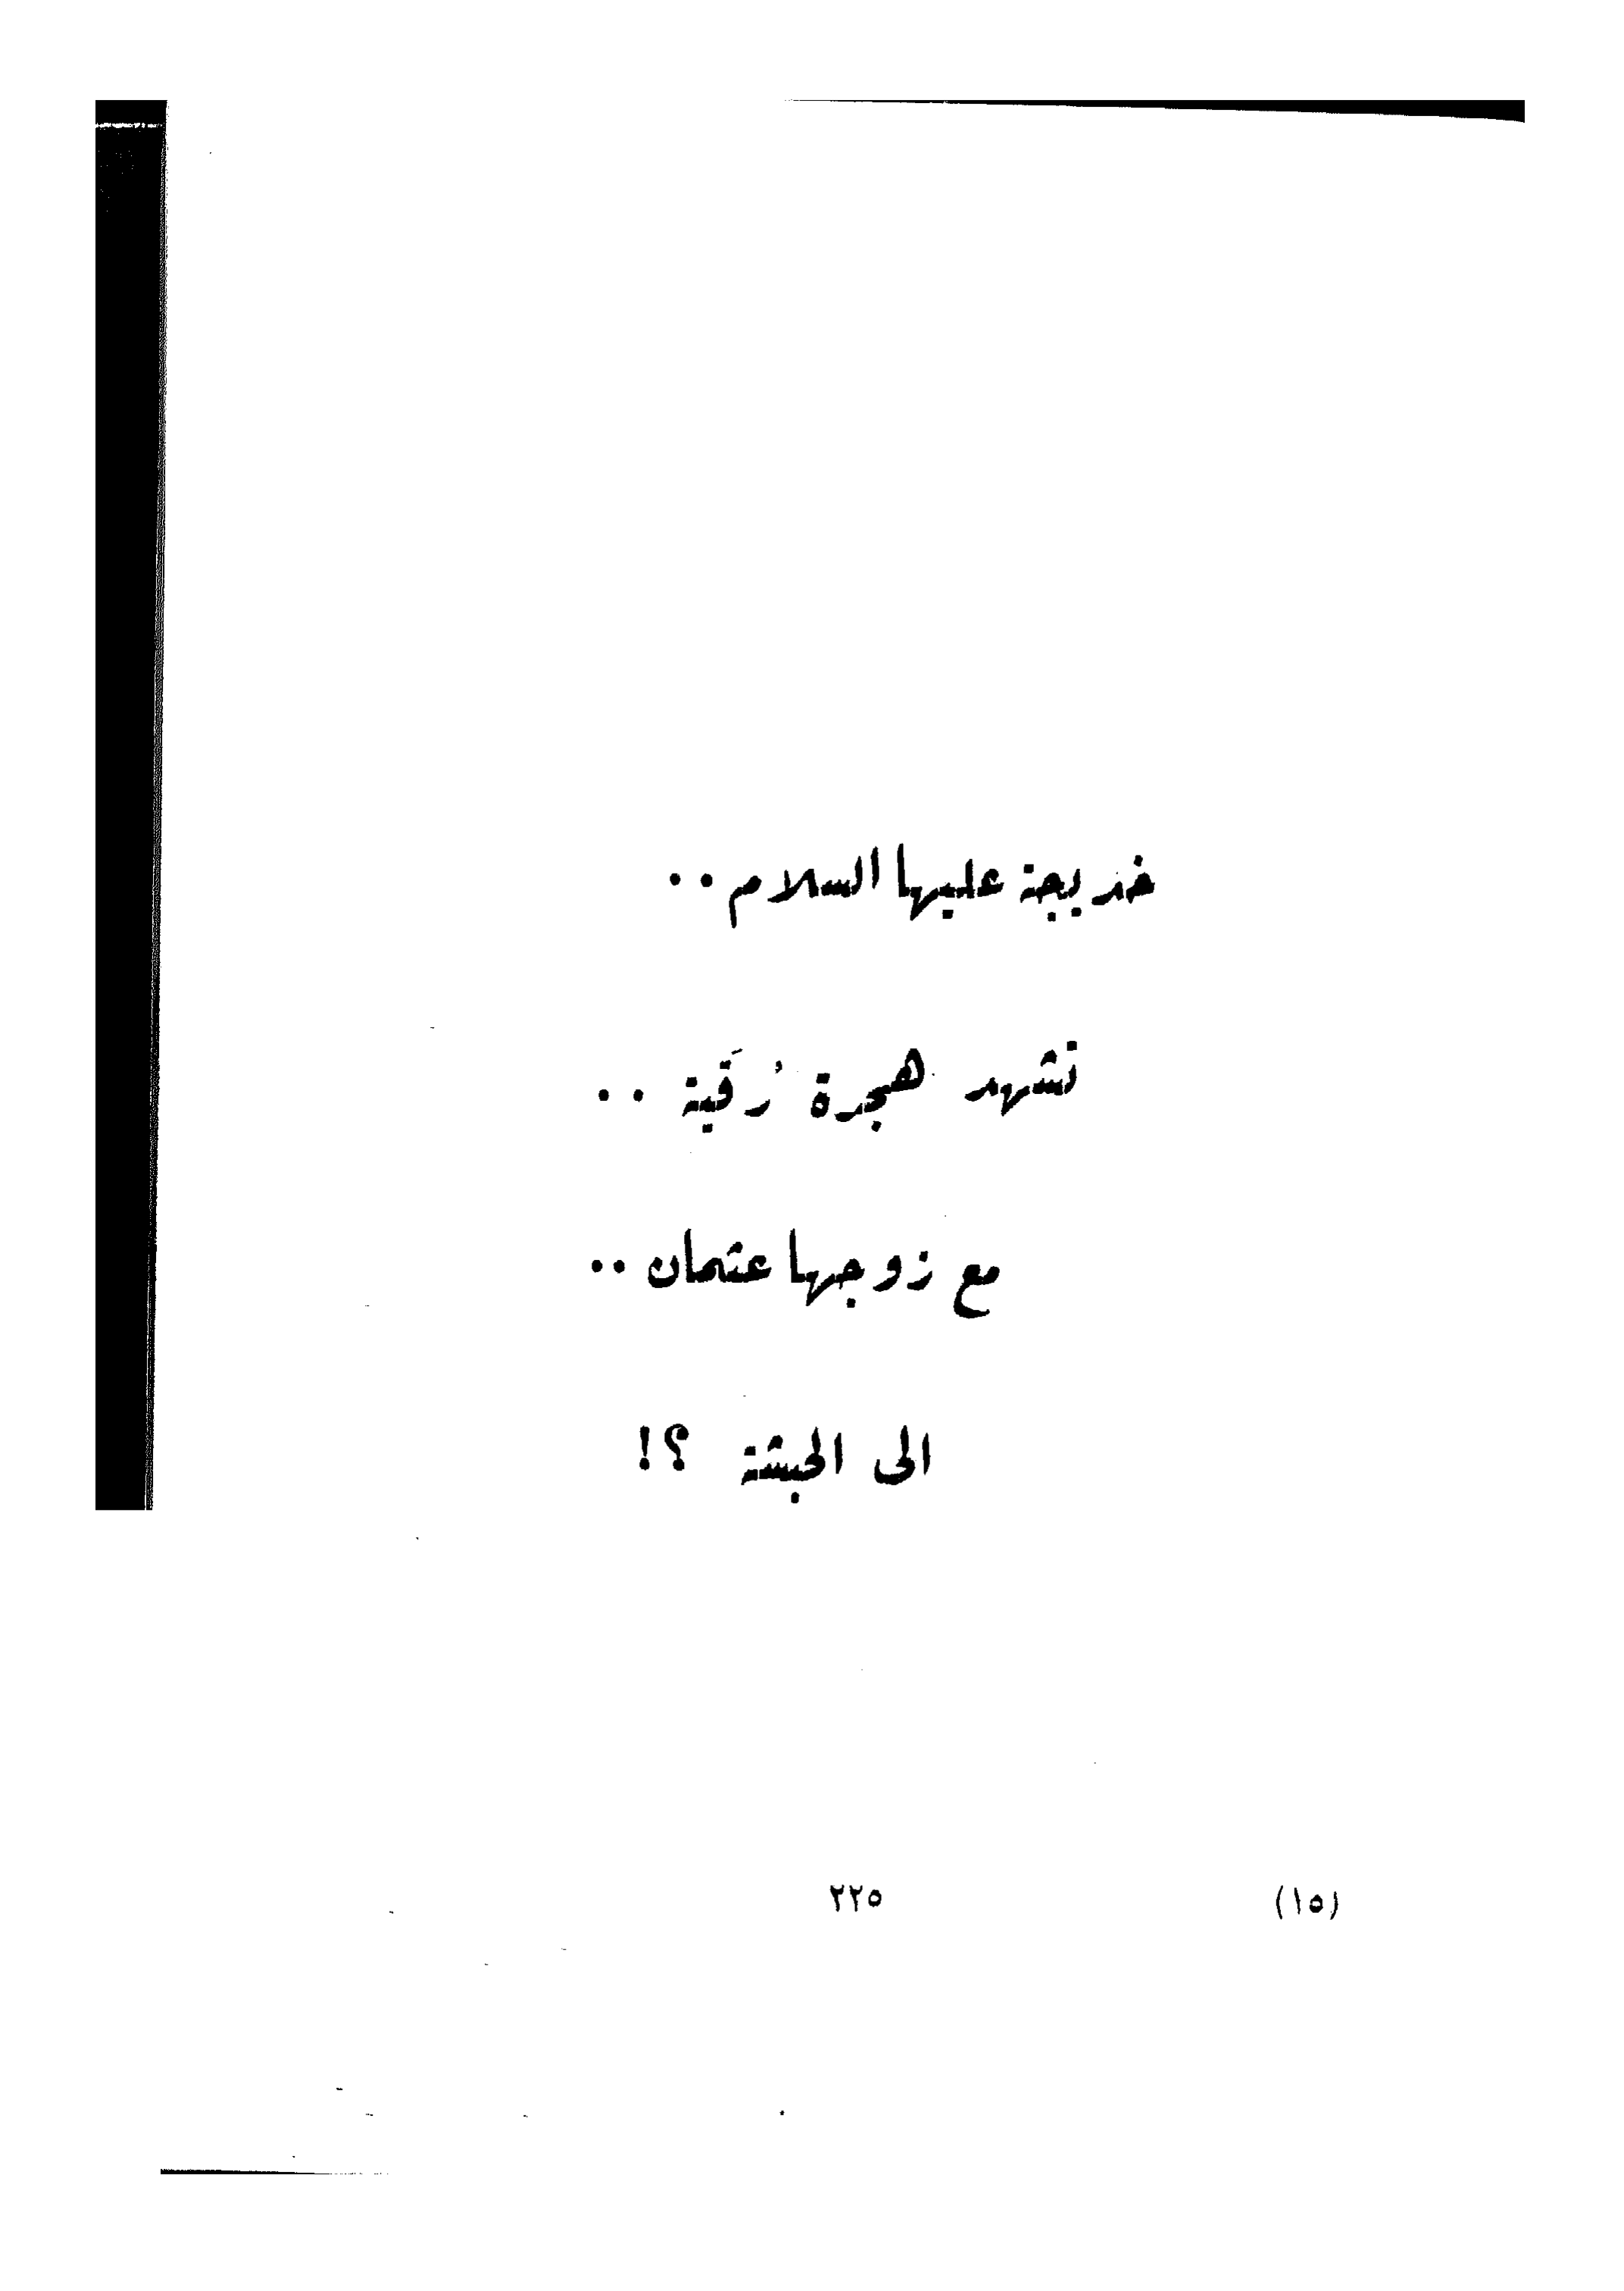 خديجة عليها السلام ..
تشهد هجرة رُقَية ..
مع زوجها عثمان ..
الى الحبشة ؟!
(١٥) ٢٢٥